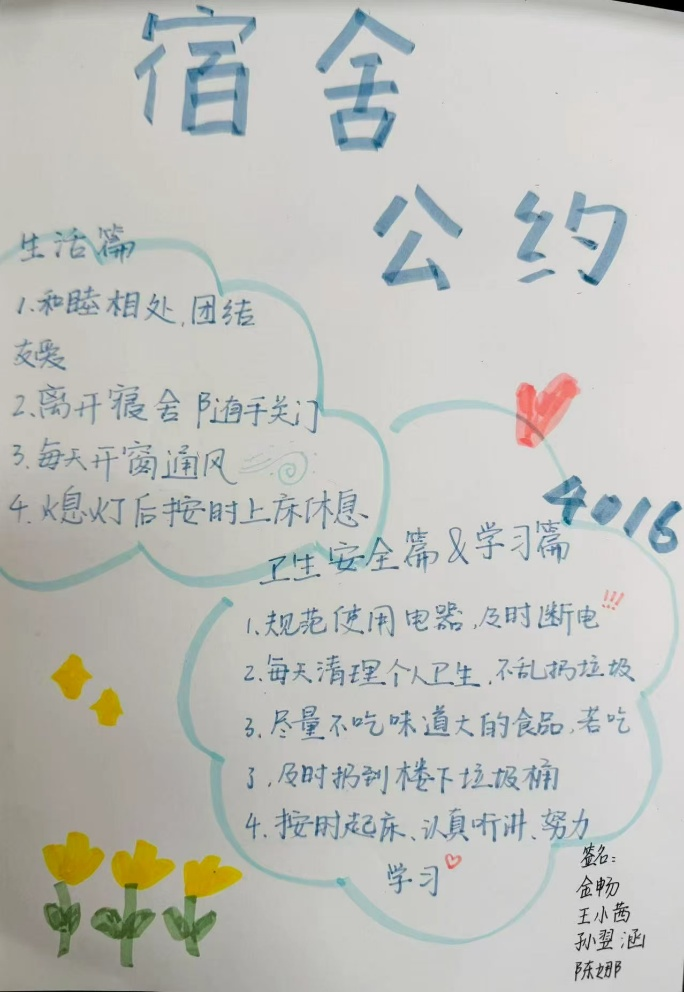 宿舍
公约
生活篇
1.和睦相处,团结
友爱
2.离开寝舍随手关门
3.每天开窗通风
4.熄灯后按时上床休息
4016
卫生安全篇&学习篇
1.规范使用电器,及时断电!!!
2.每天清理个人卫生,不乱扔垃圾
3.尽量不吃味道大的食品,若吃
了,及时扔到楼下垃圾桶
4.按时起床、认真听讲、努力
学习
签名:
金畅
王小茜
孙翌涵
陈娜